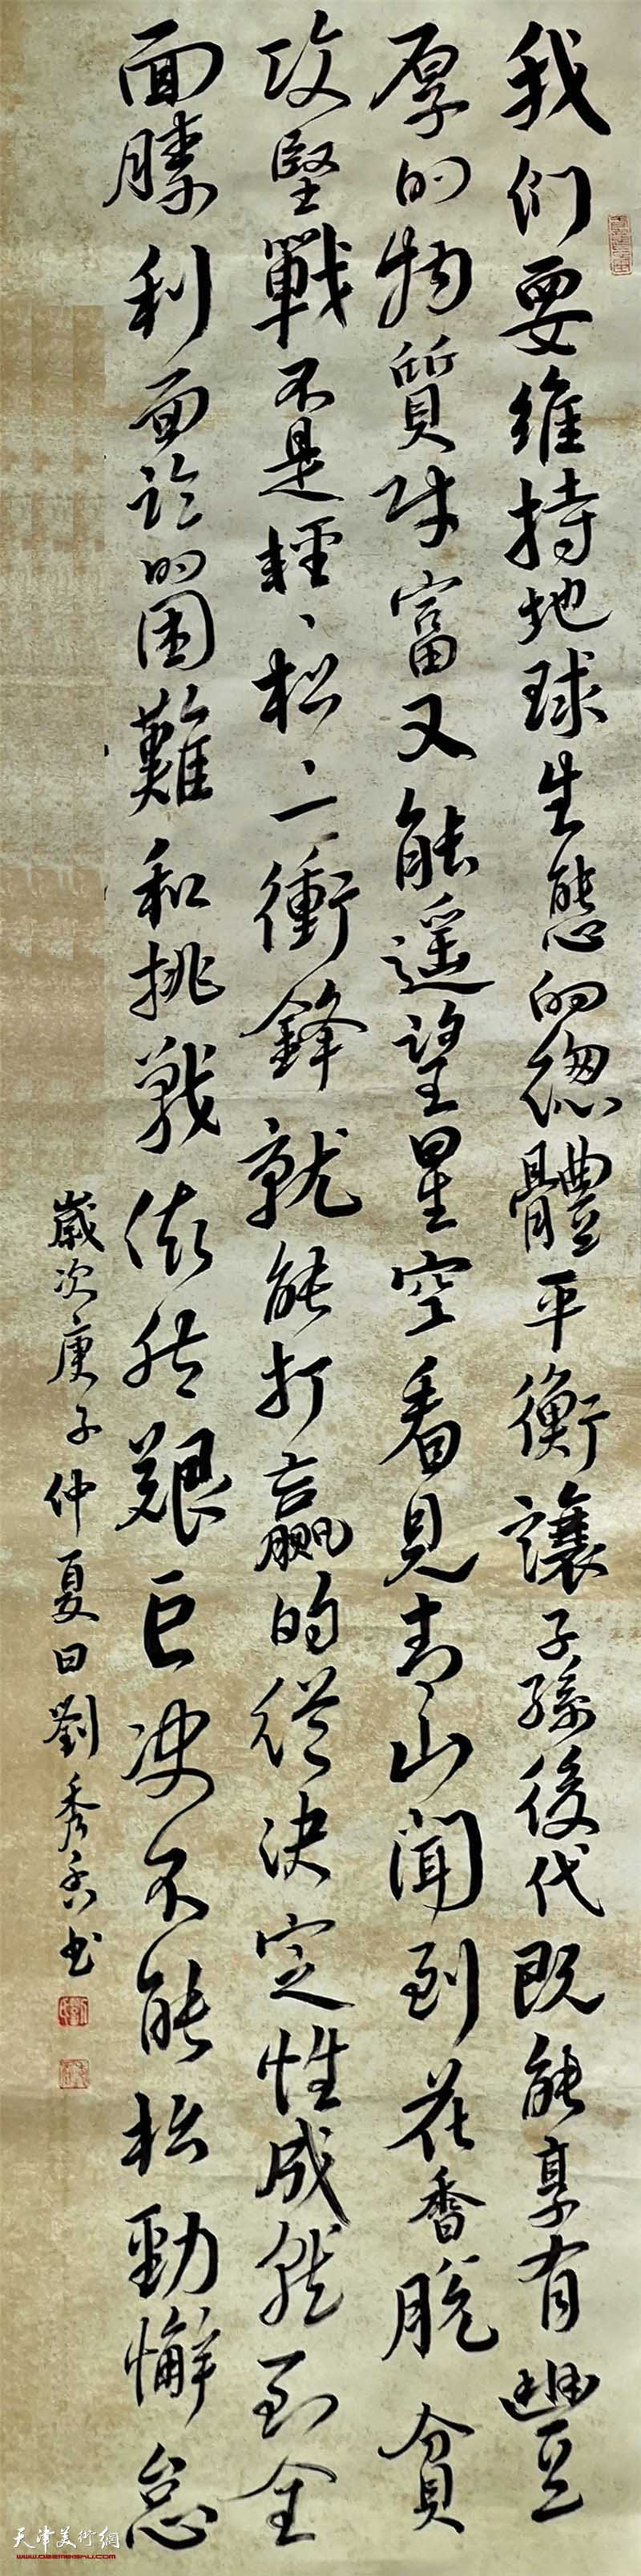 我们要維持地球生態的總體平衡讓子孫後代既能享有豐
厚的物質財富又能遥望星空看見青山聞到花香脱貧
攻堅戰不是輕、松、一衝鋒就能打赢的從決定性成就到全
面勝利面临的困難和挑戰依然艱巨决不能松勁懈怠
歲次庚子仲夏日劉秀香书
天津美術網